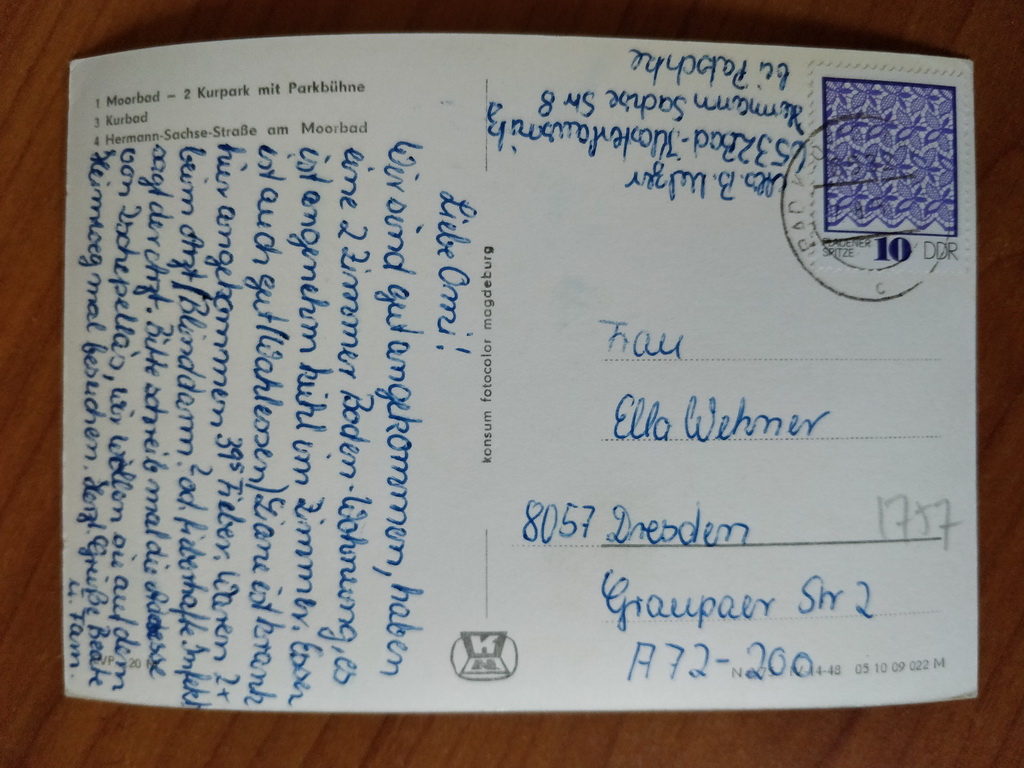 1 Moorbad – 2 Kurpark mit Parkbühne
3 Kurbad
4 Hermann-Sachse-Straße am Moorbad
Liebe Omi!
Wir sind gut angekommen, haben
eine 2 Zimmer Boden-Wohnung, es
ist angenehm kühl im Zimmer. Essen
ist auch gut (Wahlessen) Liane ist krank
hier angekommen 39⁵ Fieber. Waren 2x
beim Arzt (Blinddarm? od. fieberhafte Infekt
sagt der Arzt. Bitte schreib mal die Adresse
von Dschepella's, wir wollen sie auf dem
Heimweg mal besuchen. Herzl. Grüße Beate
u. Fam.
konsum fotocolor magdeburg
Abs. B.
6532 Bad-Klosterlausnitz
Hermann Sachse Str 8
bei Patschke
PLAUENER
SPITZE
10
DDR
Frau
Ella Wehner
8057 Dresden
1757
Graupaer Str 2
A72-200
05 10 09 022 M